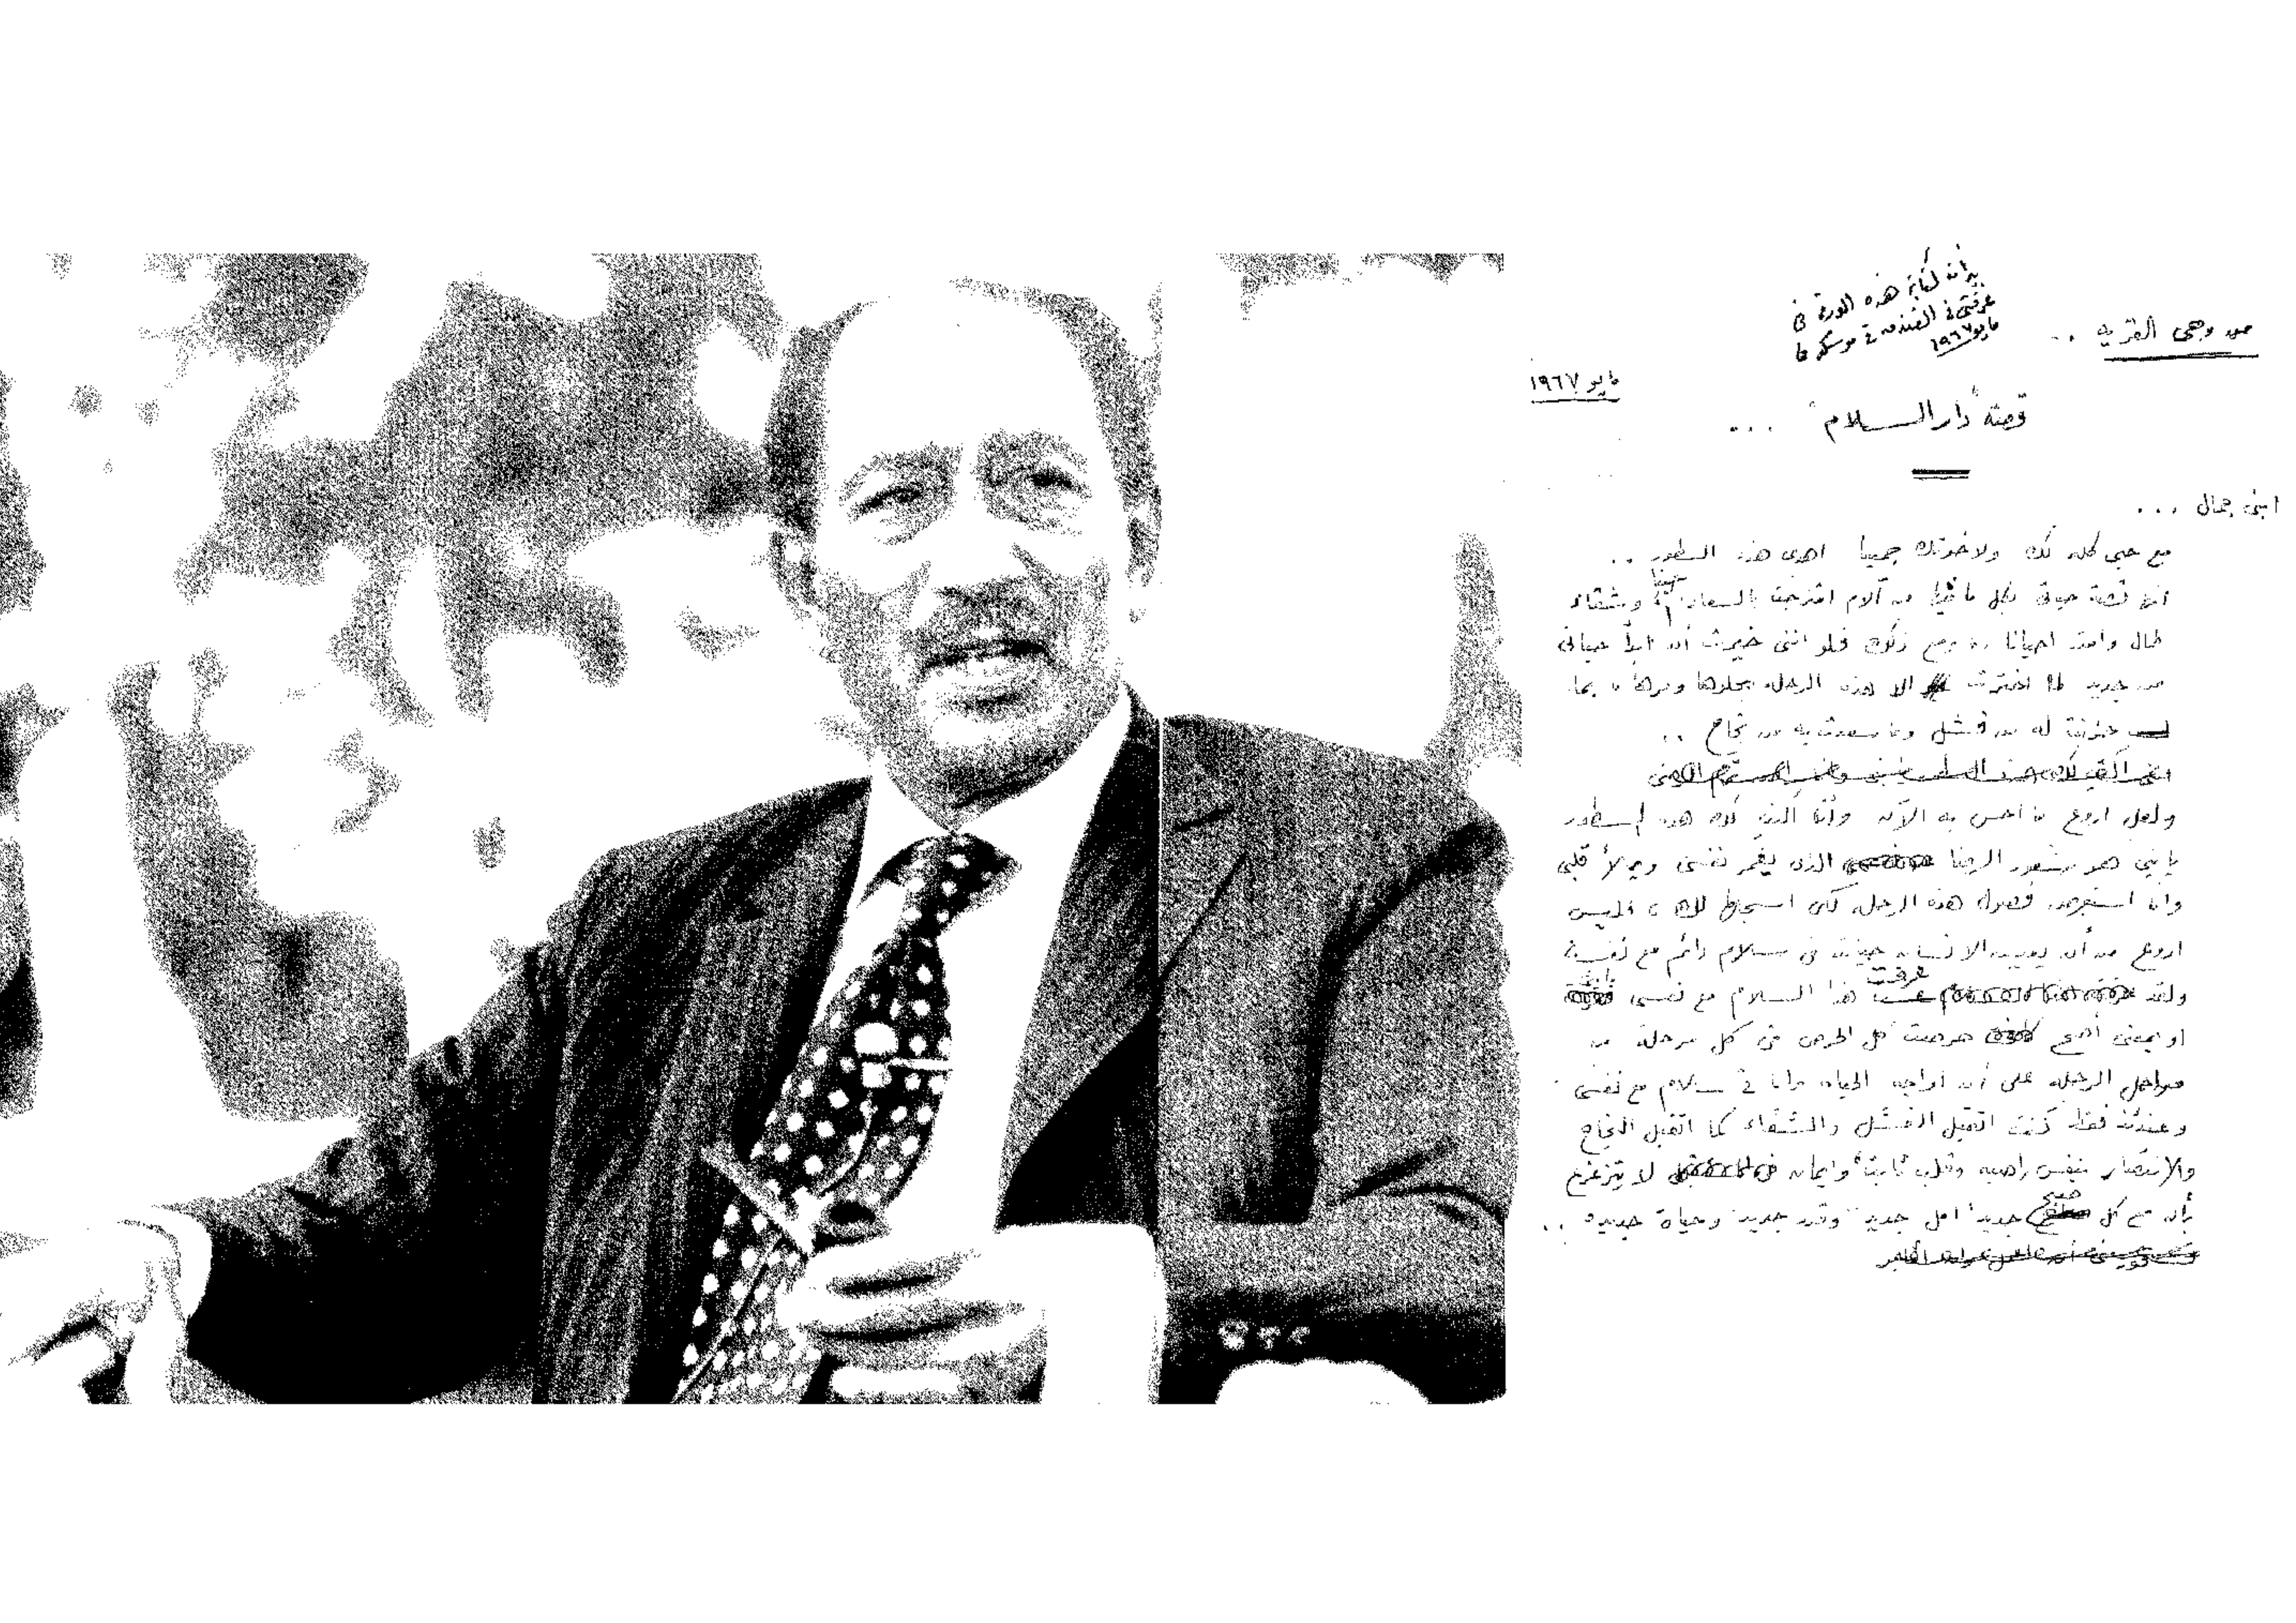 من وحى القرية ..
بدأت كتابة هذه الورقة فى
غرفتى فى الفندق فى موسكو فى
مايو ١٩٦٧
مايو ١٩٦٧
قصة "دار السلام" ...
ابنى جمال ...
مع حبى كله لك ولاخوتك جميعا اهدى هذه السطور ..
انها قصة حياتى بكل ما فيها من آلام امتزجت بالسعادة حينا وشقاء
طال وامتد احيانا ومع ذلك فلو اننى خيرت أن ابدأ حياتى
من جديد لما اخترت الا هذه الرحلة بحلوها ومرها بما
حزنت له من فشل وما سعدت به من نجاح ..
ولعل اروع ما احس به الآن وأنا اكتب لك هذه السطور
يا بنى هو شعور الرضا الذى يغمر نفسى ويملأ قلبى
وانا استعرض فصول هذه الرحلة لكى اسجلها لك فليس
اروع من أن يعيش الانسان حياته فى سلام دائم مع نفسه
ولقد عرفت هذا السلام مع نفسى
او بمعنى أصح حرصت كل الحرص فى كل مرحلة من
مراحل الرحلة على أن اواجه الحياة وانا فى سلام مع نفسى
وعندئذ فقط كنت اتقبل الفشل والشقاء كما اتقبل النجاح
والانتصار بنفس راضيه وقلب ثابت وايمان لا يتزعزع
بأن مع كل صبح جديد امل جديد وقدر جديد وحياة جديده ..